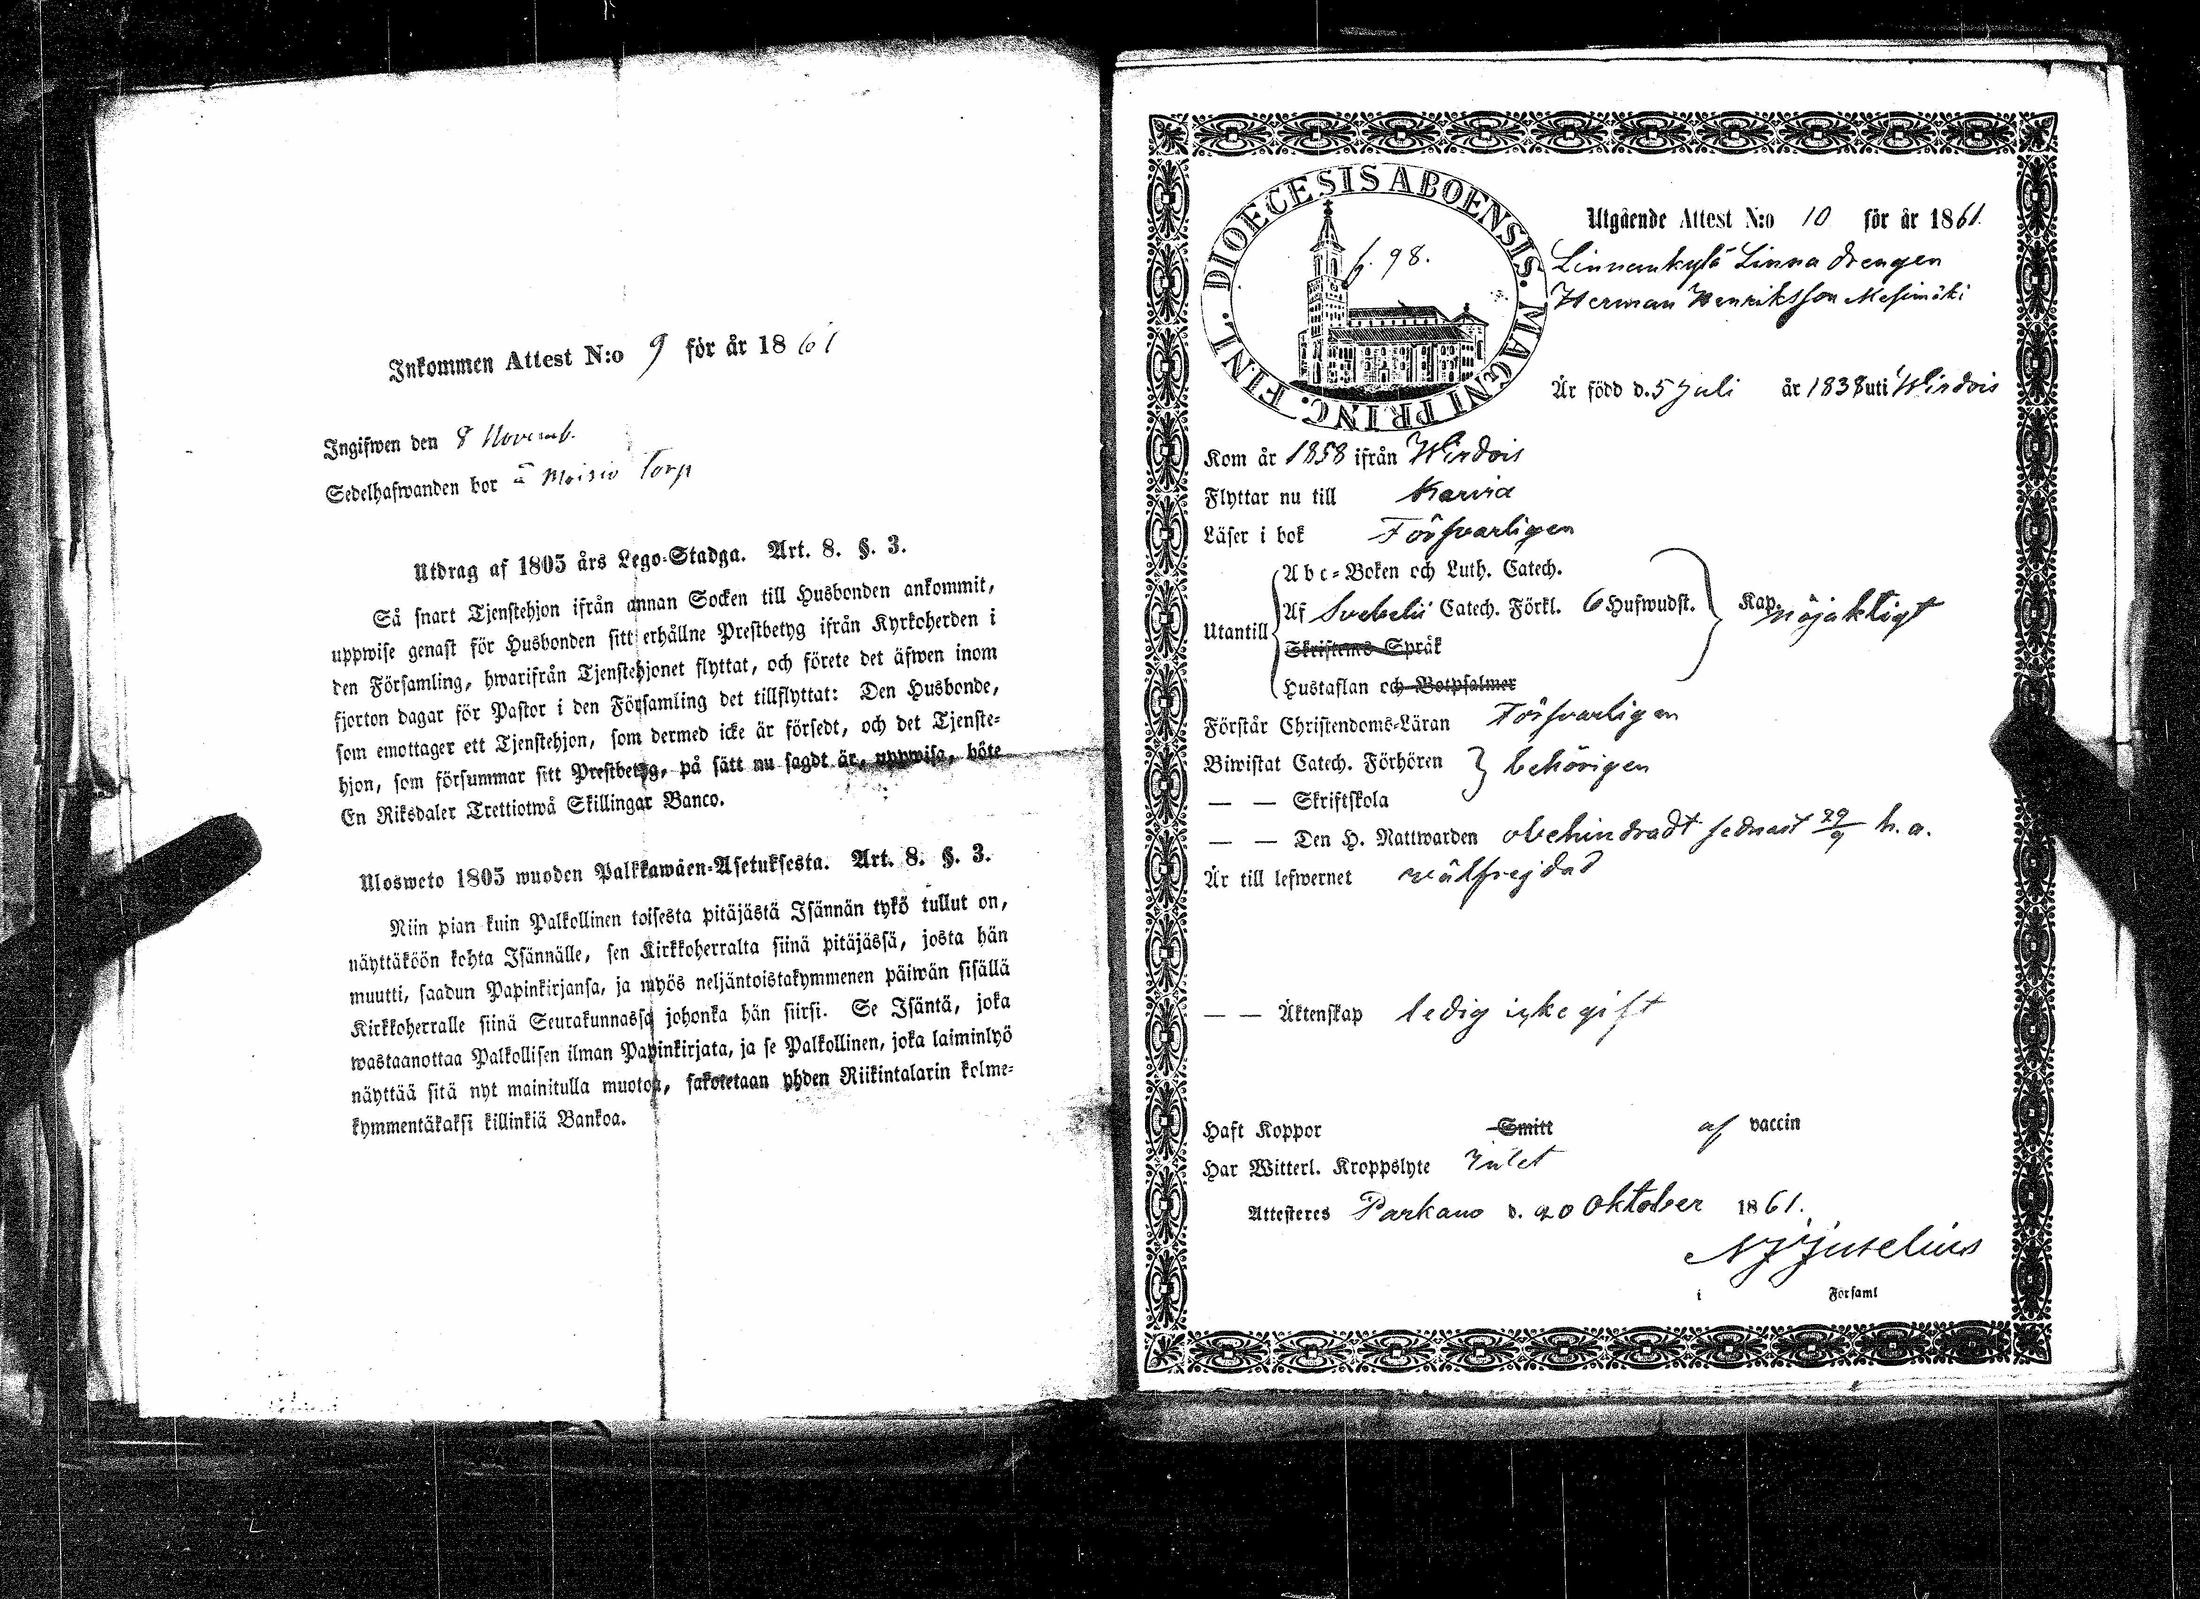 Inkommen Attest N:o 9 för år 1861
Ingifwen den 8 Novemb.
Sedelhafwanden bor å Moisio Torp
Utdrag af 1805 års Lego-Stadga. Art. 8. §. 3.
Så snart Tjenstehjon ifrån annan Socken till Husbonden ankommit,
uppwise genast för Husbonden sitt erhållne Prestbetyg ifrån Kyrkoherden i
den Församling, hwarifrån Tjenstehjonet flyttat, och förete det äfwen inom
fjorton dagar för Pastor i den Församling det tillflyttat: Den Husbonde,
som emottager ett Tjenstehjon, som dermed icke är försedt, och det Tjenste-
hjon, som försummar sitt Prestbetyg, på sätt nu sagdt är, uppwisa, böte
En Riksdaler Trettiotwå Skillingar Banco.
Ulosweto 1805 wuoden Palkkawäen-Asetuksesta. Art. 8. §. 3.
Niin pian kuin Palkollinen toisesta pitäjästä Isännän tykö tullut on,
näyttäköön kohta Isännälle, sen Kirkkoherralta siinä pitäjässä, josta hän
muutti, saadun Papinkirjansa, ja myös neljäntoistakymmenen päiwän sisällä
Kirkkoherralle siinä Seurakunnassa johonka hän siirsi. Se Isäntä, joka
wastaanottaa Palkollisen ilman Papinkirjata, ja se Palkollinen, joka laiminlyö
näyttää sitä nyt mainitulla muotoa, sakotetaan yhden Riikintalarin kolme-
kymmentäkaksi killinkiä Bankoa.
DIOECESIS ABOENSIS. MAGNI PRINC. FINL.
p. 98.
Utgående Attest N:o 10 för år 1861.
Linnankylä Linna drengen
Herman Henriksson Mesimäki
Är född d. 5 Juli år 1838 uti Wirdois
Kom år 1858 ifrån Wirdois
Flyttar nu till Karvia
Läser i bok Försvarligen
Abc-Boken och Luth. Catech.
Utantill Af Svebelii Catech. Förkl. 6 Hufwudst. Kap. nöjaktigt
Skriftens Språk
Hustaflan och Botpsalmer
Förstår Christendoms-Läran Försvarligen
Biwistat Catech. Förhören } behörigen
— — Skriftskola
— — Den H. Nattwarden obehindradt sednast 29/9 h. a.
Är till lefwernet välfrejdad
— — Äktenskap ledig icke gift
Haft Koppor Smitt af vaccin
Har Witterl. Kroppslyte intet
Attesteres Parkano d. 20 Oktober 1861.
Juselius
i Församl